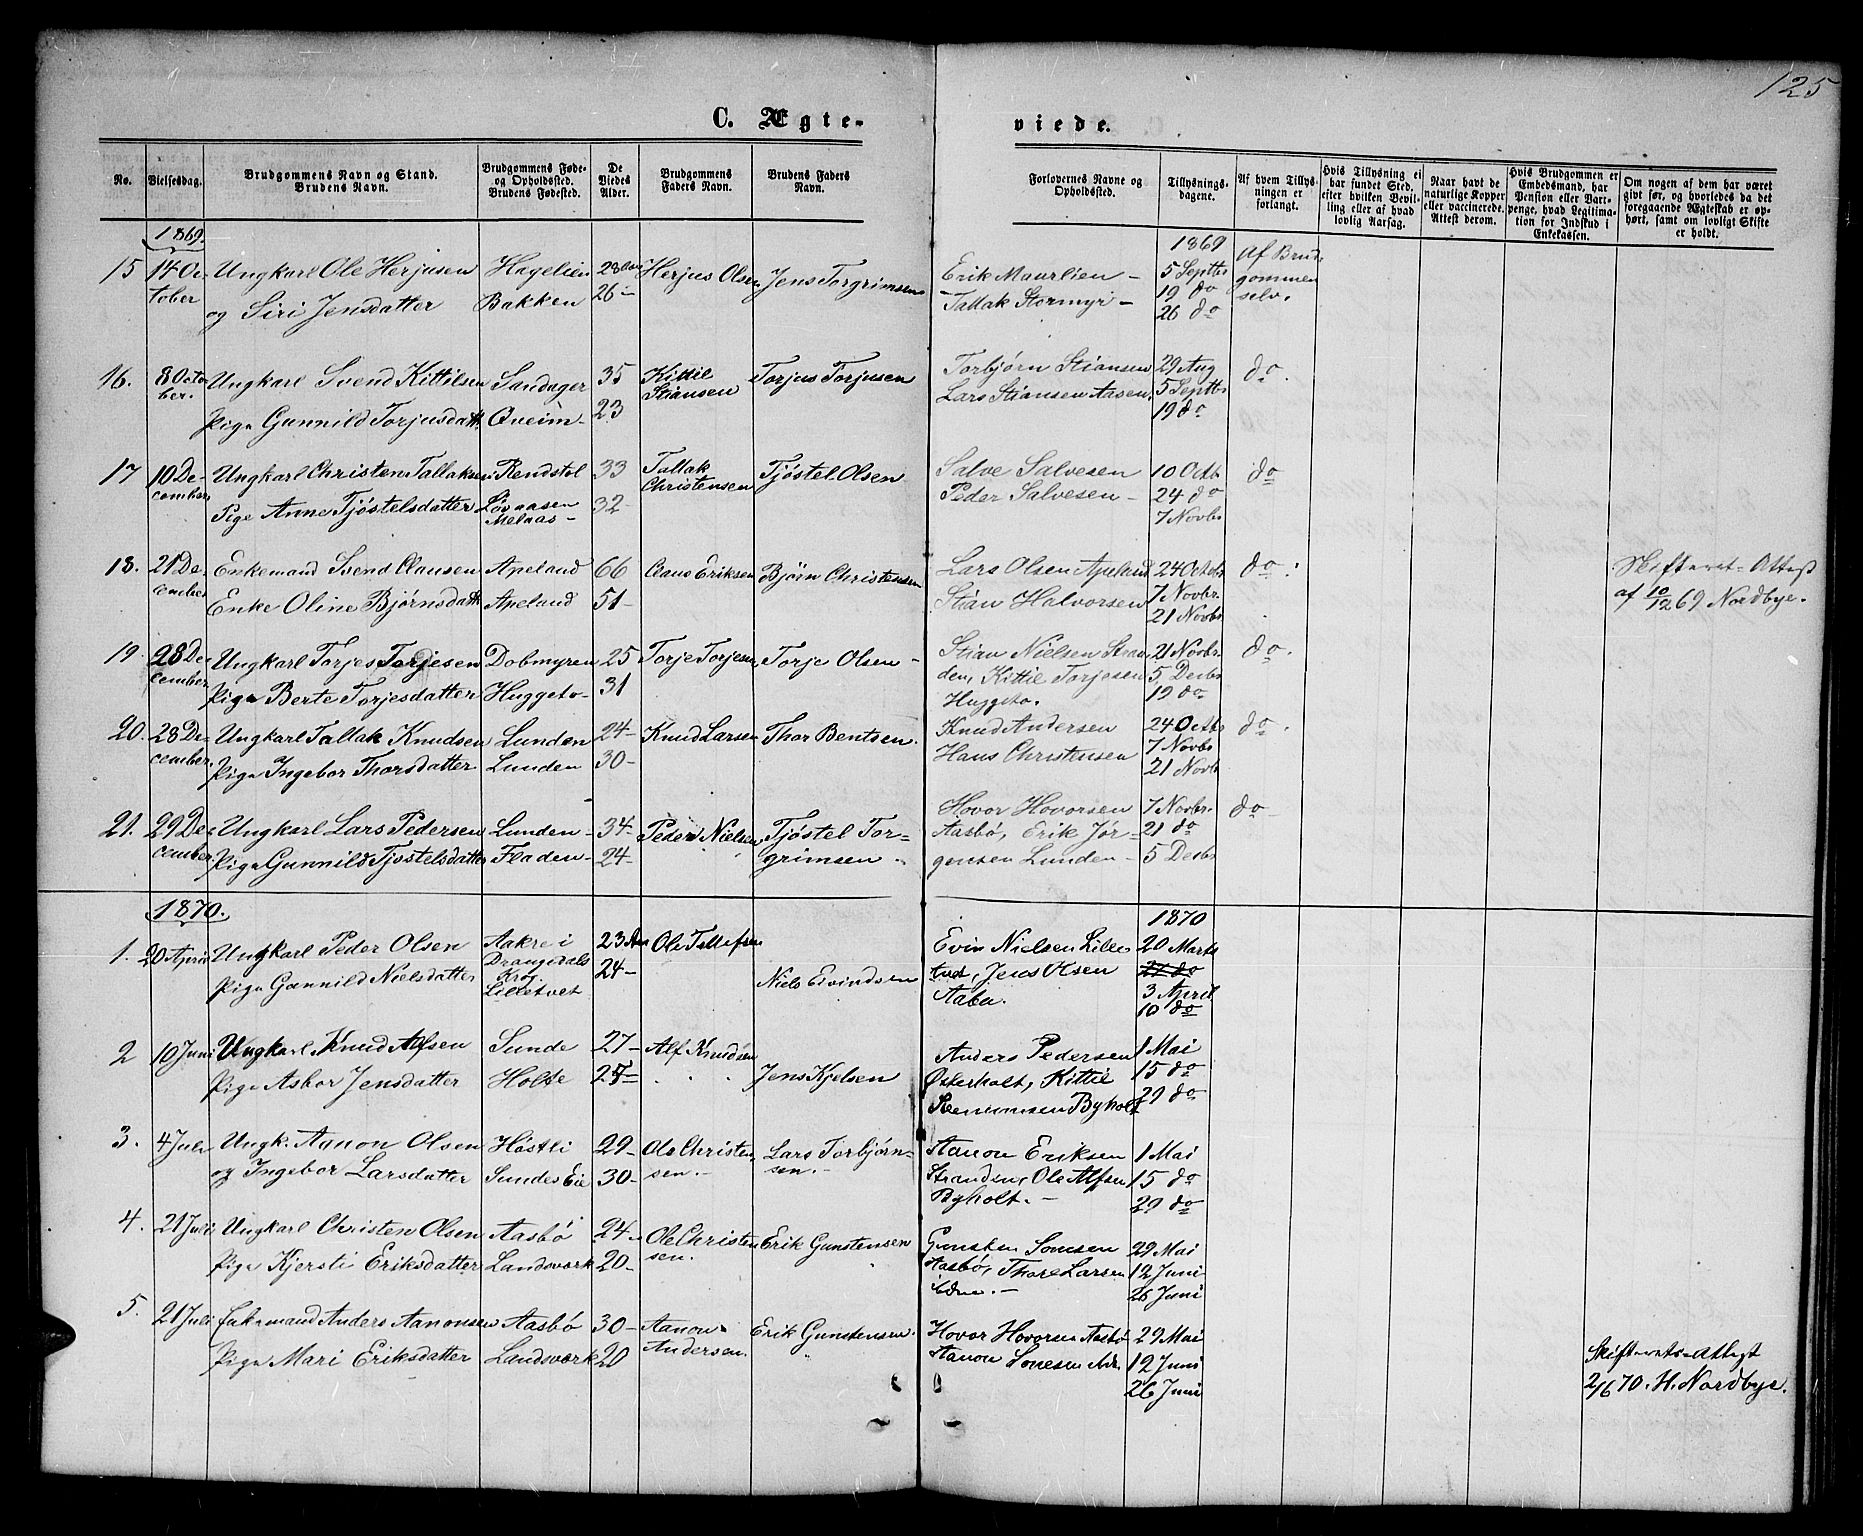 125
C. Ægte-
viede.
No.
Vielsesdag.
Brudgommens Navn og Stand.
Brudens Navn.
Brudgommens Føde-
og Opholdssted.
Brudens Fødested.
De
Viedes
Alder.
Brudgommens
Faders Navn.
Brudens Faders
Navn.
Forlovernes Navne og
Opholdssted.
Tillysnings-
dagene.
Af hvem Tillys-
ningen er
forlangt.
Hvis Tillysning ei
har fundet Sted,
efter hvilken Bevil-
ling eller af hvad
lovlig Aarsag.
Naar havt de
naturlige Kopper
eller vaccinerede.
Attest derom.
Hvis Brudgommen er
Embedsmand, har
Pension eller Vart-
penge, hvad Legitima-
tion for Indskud i
Enkekassen.
Om nogen af dem har været
givt før, og hvorledes da det
foregaaende Ægteskab er op-
hørt, samt om lovligt Skifte
er holdt.
1869.
1869
15 14 Oc- Ungkarl Ole Herjusen Hagelien 28 Herjus Olsen Jens Torgrimsen Erik Maurlien - 5 Septbr Af Brud-
tober og Siri Jensdatter Bakken 26 - Tallak Stormyr - 19 do gommen
26 do selv.
16. 8 Octo- Ungkarl Svend Kittilsen Sandager 35 Kittil Torjus Torjusen Torbjørn Stiansen 29 Aug do.
ber. Pige Gunnild Torjusdatt. Qveim - 23 Stiansen Lars Stiansen Aasen 5 Septbr
19 do
17 10 De- Ungkarl Christen Tallaksen Rendstol 33 Tallak Tjøstel Olsen Salve Salvesen 10 Octb. do
cember Pige Anne Tjøstelsdatter Løvaasen 32 - Christensen Peder Salvesen - 24 do
Melaas - 7 Novbr
18. 21 De- Enkemand Svend Clausen Apeland 66 Claus Eriksen Bjørn Christensen Lars Olsen Apeland 24 Octobr do. Skifteret-Attest
cember Enke Oline Bjørnsdatt. Apeland 51 - Stian Halvorsen 7 Novbr. af 10/12 69 Nordbye.
21 Novbr
19. 28 De- Ungkarl Torjes Torjesen Dobmyren 25 Torje Torjesen Torje Olsen - Stian Nielsen Stran- 21 Novbr. do.
cember Pige Berte Torjesdatter Huggeto - 31 den, Kittil Torjesen 5 Decbr
Huggeto. 19 do
20. 28 De- Ungkarl Tallak Knudsen Lunden 24 - Knud Larsen Thor Bentsen. Knud Andersen 24 Octbr do.
cember. Pige Ingebor Thorsdatter Lunden 30 - Hans Christensen 7 Novbr
21 Novb.
21. 29 De- Ungkarl Lars Pedersen Lunden - 34 - Peder Nielsen Tjøstel Tor- Hovor Hovorsen 7 Novbr. do
cember Pige Gunnild Tjøstelsdatter Fladen - 24 - grimsen Aasbø, Erik Jør- 21 do
gensen Lunden - 5 Decbr
1870.
1870
1. 20 April Ungkarl Peder Olsen Aakre i 23 Ole Tallefsen Evin Nielsen Lille- 20 Marts
Pige Gunnild Nielsdatter Drangedals 24 - Niels Eivindsen tvet, Jens Olsen 27 do
Lilletvet 3 April
10 do
2 10 Juni Ungkarl Knud Alfsen Sunde 27 - Alf Knudsen Anders Pedersen 1 Mai
Pige Asbor Jensdatter Holte Jens Kjelsen Østerholt, Kittil 15 do
Byholt 29 do
3. 4 Juli Ungk. Aanon Olsen Høstli 29 - Ole Christen- Lars Torbjørn- Aanon Eriksen 1 Mai
og Ingebor Larsdatter Sundes Eie 30 - sen. - sen. - Stranden, Ole Alfsen 15 do
Byholt. - 29 do
4. 21 Juli Ungkarl Christen Olsen Aasbø 24 - Ole Christen- Erik Gunstensen Gunsten 29 Mai
Pige Kjersti Eriksdatter Landsværk 20 - sen. Aasbø, Thore Larsen 12 Juni
26 Juni
5. 21 Juli Enkemand Anders Aanonsen Aasbø 30 - Aanon Erik Gunstensen. Hovor Hovorsen Aasbø 29 Mai
Pige Mari Eriksdatter Landsværk 20 Andersen. Aanon 12 Juni Skifterets-Attest
26 Juni 2/6 70. H. Nordbye.